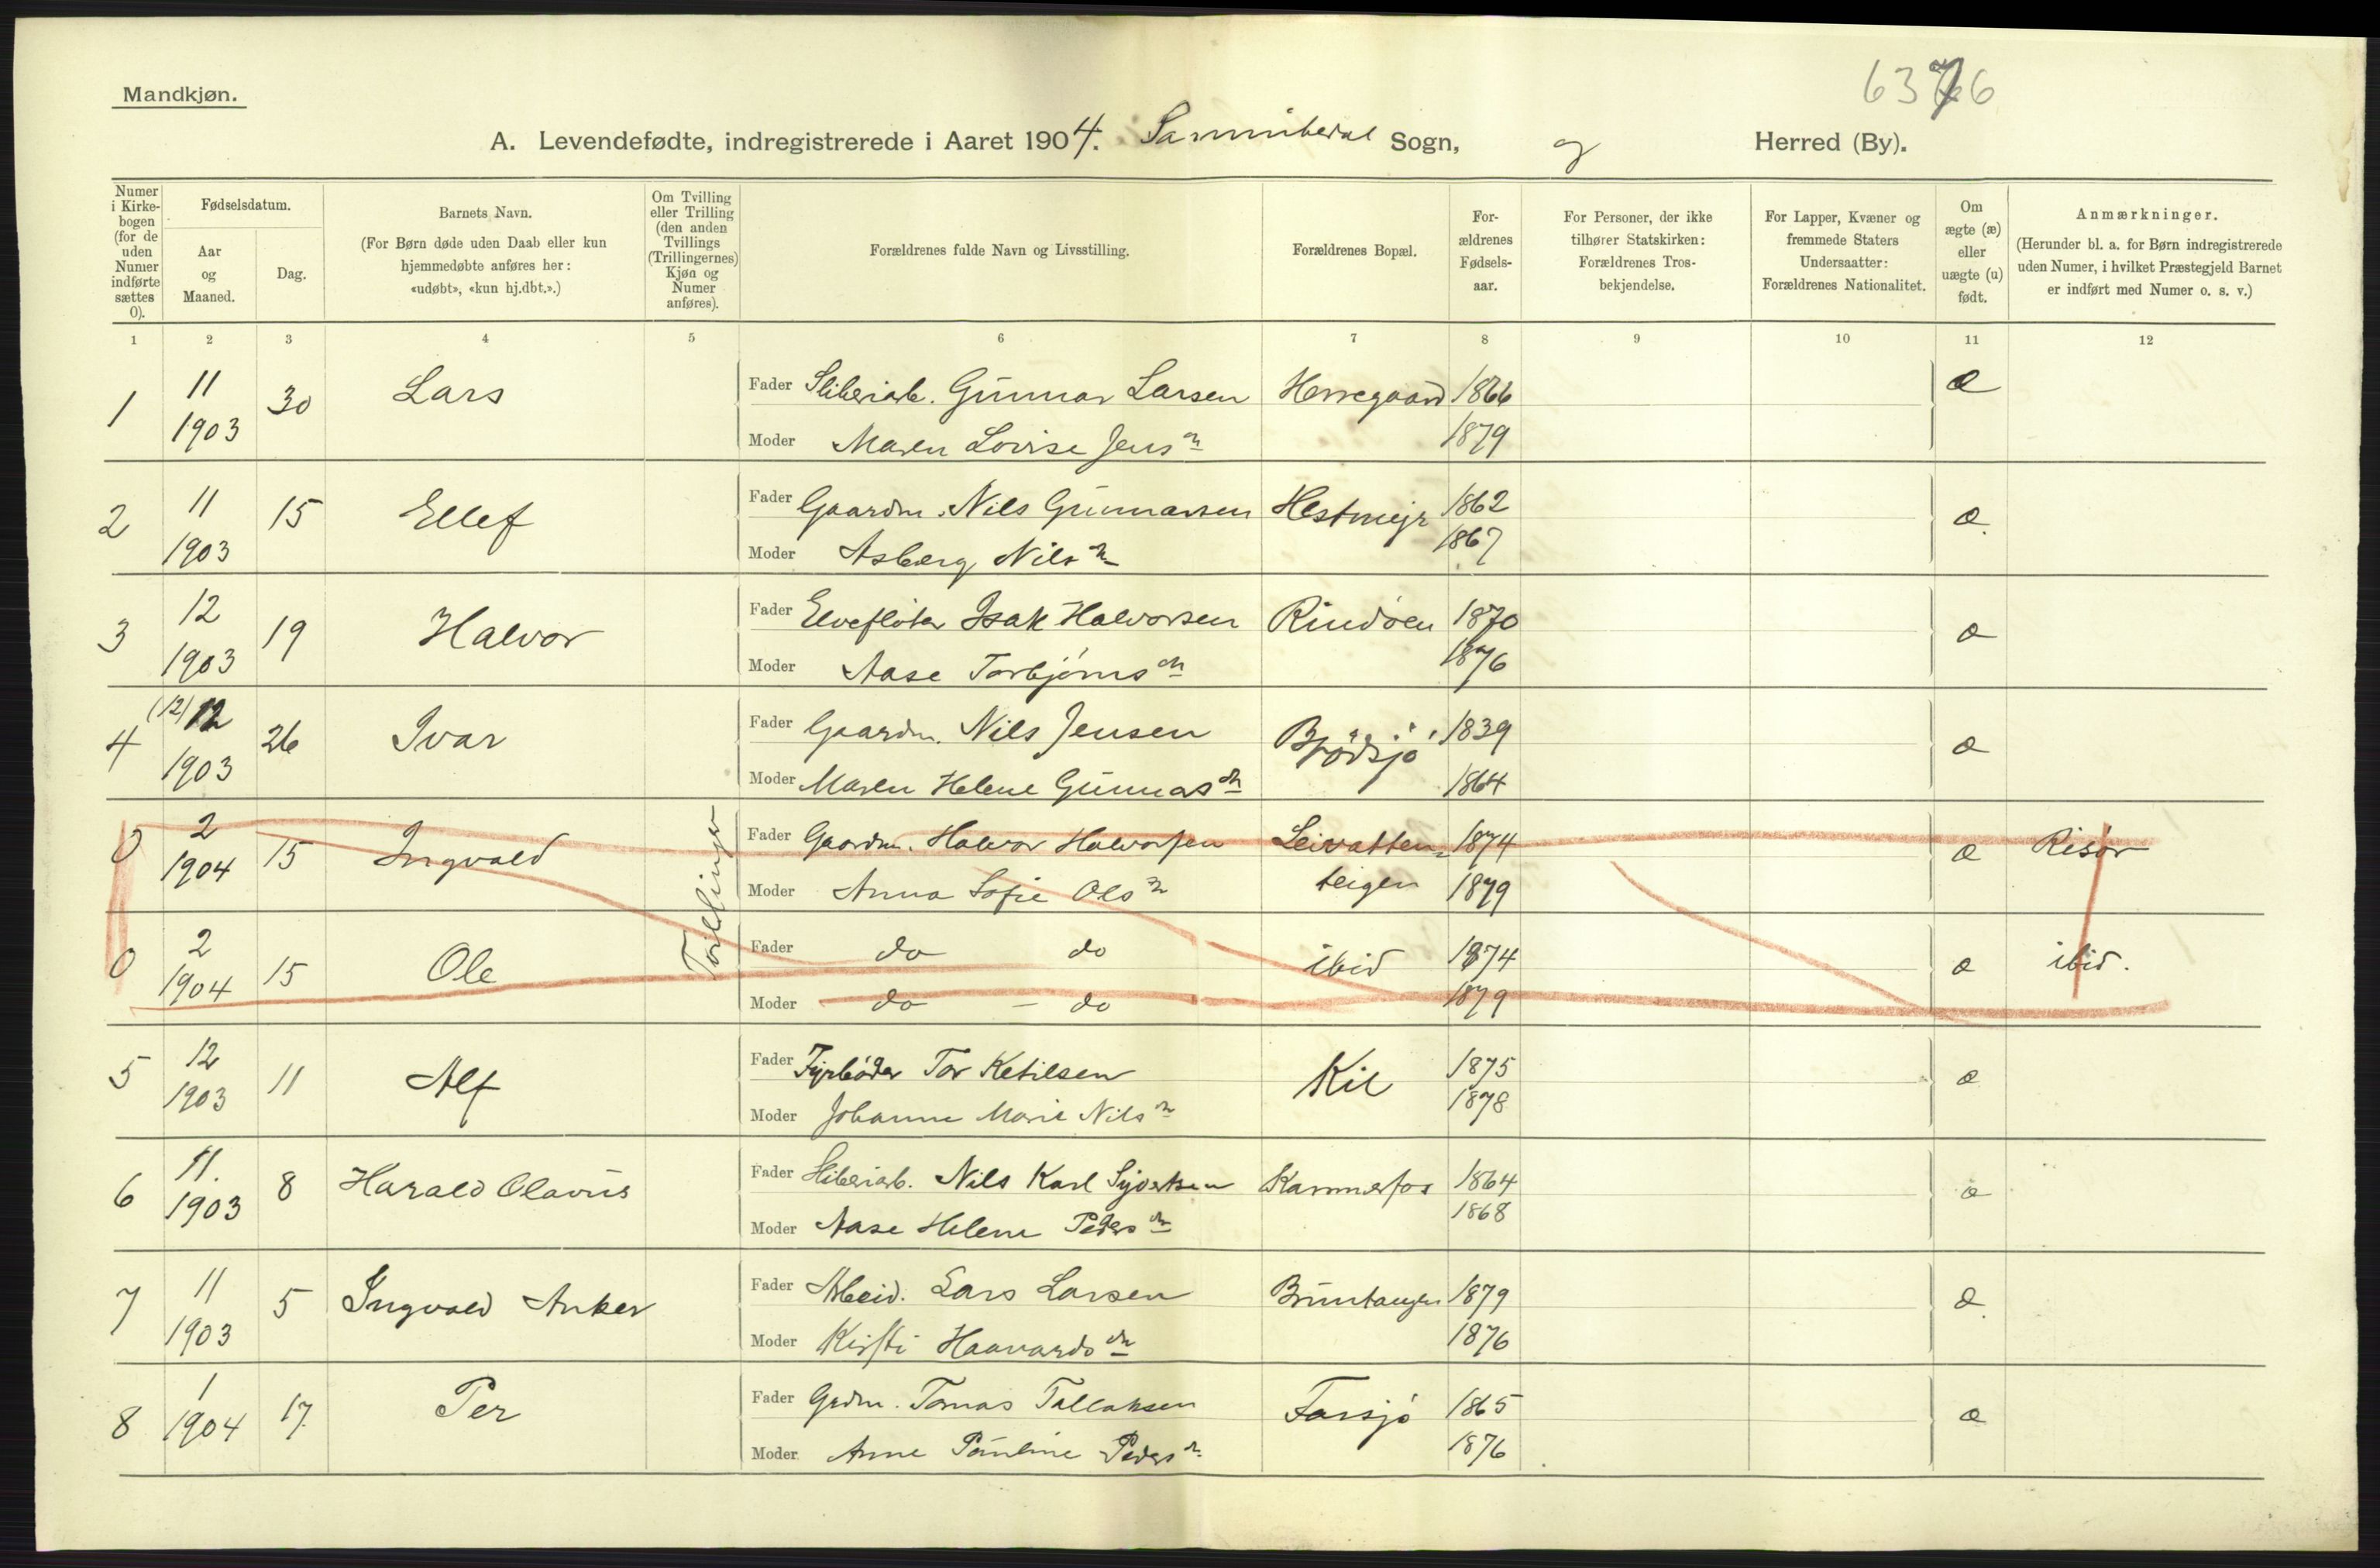 6376
Mandkjøn.
A. Levendefødte, indregistrerede i Aaret 1904. Sannikedal Sogn, og Herred (By).
Numer i Kirkebogen (for de uden Numer indførte sættes 0).
Fødselsdatum.
Aar og Maaned.
Dag.
Barnets Navn.
(For Børn døde uden Daab eller kun hjemmedøbte anføres her: «udøbt», «kun hj.dbt.».)
Om Tvilling eller Trilling (den anden Tvillings (Trillingernes) Kjøn og Numer anføres).
Forældrenes fulde Navn og Livsstilling.
Forældrenes Bopæl.
Forældrenes Fødselsaar.
For Personer, der ikke tilhører Statskirken: Forældrenes Trosbekjendelse.
For Lapper, Kvæner og fremmede Staters Undersaatter: Forældrenes Nationalitet.
Om ægte (æ) eller uægte (u) født.
Anmærkninger.
(Herunder bl. a. for Børn indregistrerede uden Numer, i hvilket Præstegjeld Barnet er indført med Numer o. s. v.)
1 2 3 4 5 6 7 8 9 10 11 12
1 11 1903 30 Lars Fader Sliberiarb. Gunnar Larsen Herregaard 1866 æ
Moder Maren Lovise Jensdn 1879
2 11 1903 15 Ellef Fader Gaardm. Nils Gunnarsen Hestmyr 1862 æ
Moder Asberg Nilsdn 1867
3 12 1903 19 Halvor Fader Elvefløter Isak Halvorsen Rindøen 1870 æ
Moder Aase Torbjørnsdn 1876
4 (12) 12 1903 26 Ivar Fader Gaardm. Nils Jensen Brødsjø 1839 æ
Moder Maren Helene Gunnasdn 1864
0 2 1904 15 Ingvald Tvillinger Fader Gaardm. Halvor Halvorsen Leivatten- 1874 æ Risør
Moder Anna Sofie Olsdn teigen 1879
0 2 1904 15 Ole Fader do do ibid 1874 æ ibid.
Moder do — do 1879
5 12 1903 11 Alf Fader Fyrbøder Tor Ketilsen Kil 1875 æ
Moder Johanne Marie Nilsdn 1878
6 11. 1903 8 Harald Olavus Fader Sliberiarb. Nils Karl Syvertsen Kammerfos 1864 æ
Moder Aase Helene Pedersdn 1868
7 11 1903 5 Ingvald Anker Fader Arbeid. Lars Larsen Bruntangen 1879 æ
Moder Kirsti Haavardsdn 1876
8 1 1904 17 Per Fader Grdm. Tomas Tallaksen Farsjø 1865 æ
Moder Anne Pauline Pedersdn 1876